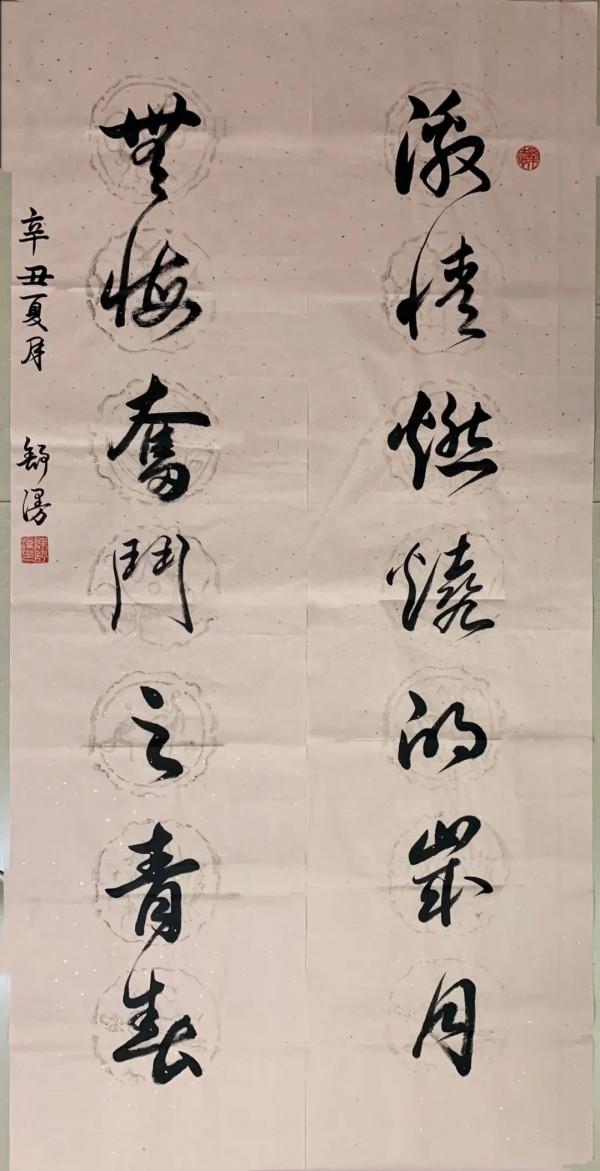 激情燃燒的歲月
無悔奮鬥之青春
辛丑夏月 舒漫